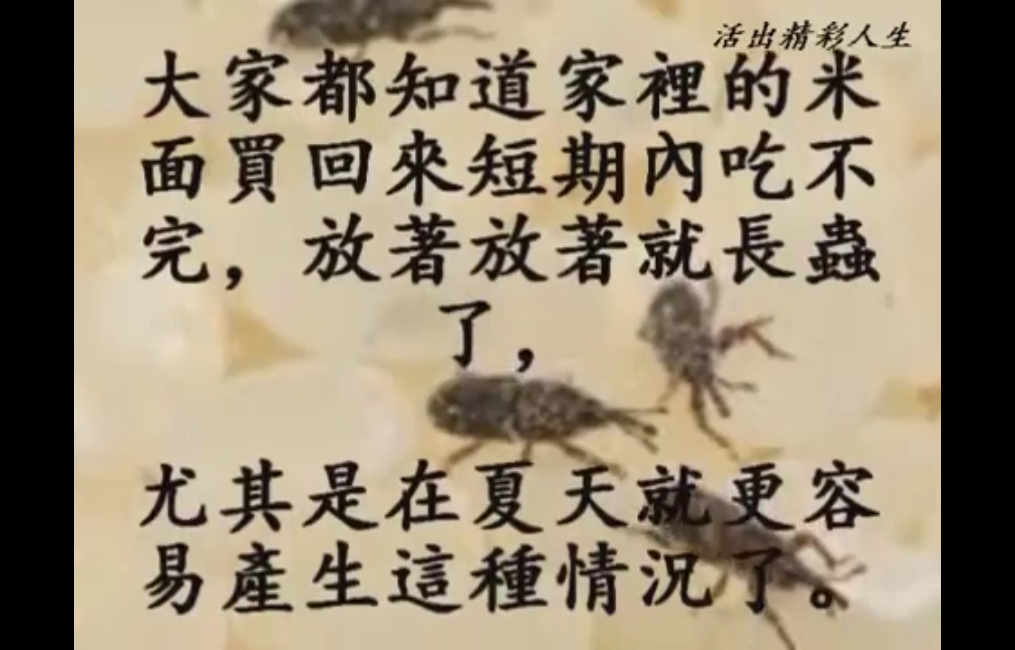 活出精彩人生
大家都知道家裡的米
面買回來短期內吃不
完，放著放著就長蟲
了，
尤其是在夏天就更容
易產生這種情況了。